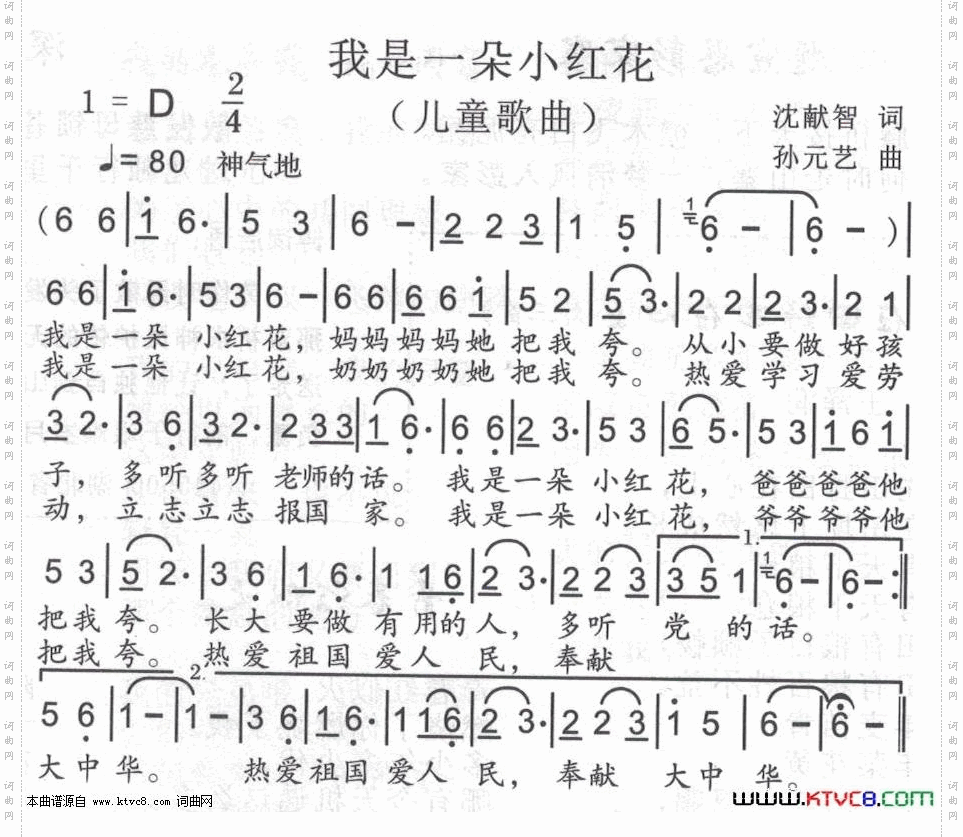 我是一朵小红花
1 = D 2/4
（儿童歌曲）
沈献智 词
♩= 80 神气地
孙元艺 曲
( 6 6 | i 6· | 5 3 | 6 – | 2 2 3 | 1 5 | 6 – | 6 – ) |
6 6 | i 6· | 5 3 | 6 – | 6 6 | 6 6 i | 5 2 | 5 3· | 2 2 | 2 3· | 2 1 |
我是一朵 小红花，妈妈妈妈她 把我 夸。 从小要做 好孩
我是一朵 小红花，奶奶奶奶她 把我 夸。 热爱学习 爱劳
3 2· | 3 6 | 3 2· | 2 3 3 | 1 6· | 6 6 | 2 3· | 5 3 | 6 5· | 5 3 | i 6 i |
子， 多听多听 老师的话。 我是一朵 小红 花， 爸爸爸爸他
动，立志立志 报国 家。 我是一朵 小红 花， 爷爷爷爷他
1.
5 3 | 5 2· | 3 6 | 1 6· | 1 1 6 | 2 3· | 2 2 3 | 3 5 1 | 6 – | 6 – :|
把我 夸。 长大 要做 有用的人， 多听 党 的话。
把我 夸。 热爱 祖国 爱人 民， 奉献
2.
5 6 | 1 – | 1 – | 3 6 | 1 6· | 1 1 6 | 2 3· | 2 2 3 | i 5 | 6 – | 6 – ‖
大中 华。 热爱祖国 爱人 民， 奉献 大中 华。
本曲谱源自 www.ktvc8.com 词曲网
www.KTVC8.com